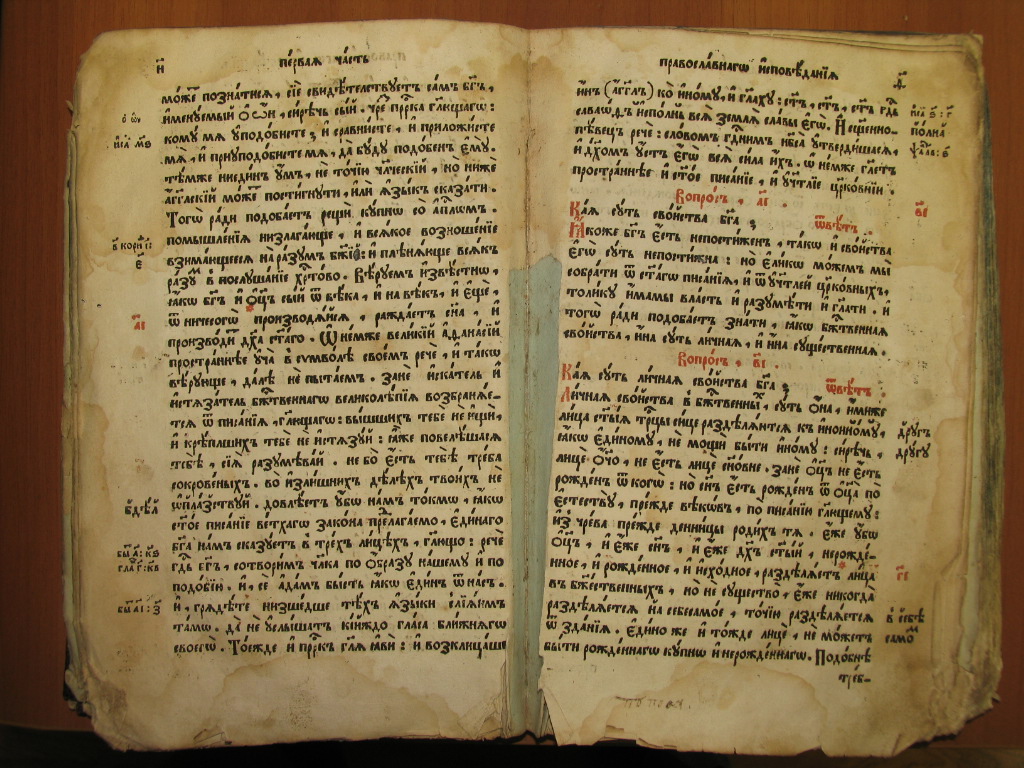 и҃
первая часть
може познатися, сїе свидѣтелствуетъ самъ бг҃ъ,
именуемый ѻ҆ѡ҆́н, сирѣчь сый. чре прр҃ка гл҃ющагѡ:
кому мя уподобисте, и сравнисте, и приложисте
мя, и приуподобисте мя, да буду подобенъ ему.
тѣмже ниединъ умъ, не точїю чл҃ческїй, но ниже
агг҃лскїй може постигнути, или языкъ сказати.
Тогѡ ради подобаетъ рещи купнѡ со ап҃лѡмъ.
помышленїя низлагающе, и всякое возношенїе
взимающееся на разумъ бж҃їй: и плѣняюще всякъ
разу в послушанїе хр҃тово. Вѣруемъ извѣстнѡ,
якѡ бг҃ъ и ѻц҃ъ сый ѿ вѣка, и на вѣкъ, и еще,
ѿ ничесогѡ производяйся, раждаетъ сн҃а, и
производи дх҃а ст҃аго. Ѡ немже великїй аѳанасїй
пространнѣе уча в сумволѣ своемъ рече, и такѡ
вѣрующе, далѣ не пытаем. Зане искатель и
истязатель бж҃твеннагѡ великолѣпїя возбраняе-
тся ѿ писанїя, глющагѡ: вышшихъ тебе не ищи,
и крѣпшихъ тебе не истязуй: яже повелѣшася
тебѣ, сїя разумѣвай. не бо есть тебѣ треба
сокровеныхъ. во излишнихъ дѣлѣхъ твоихъ не
ѡплазствуй. довлѣетъ убѡ намъ токмѡ, якѡ
ст҃ое писанїе ветхагѡ закона прелагаемо, единаго
бг҃а намъ сказуетъ в трехъ лицѣхъ, глющо: рече
гд҃ь бг҃ъ, сотворимъ чл҃ка по ѻбразу нашему и по
подобїи, и, се адамъ бысть якѡ единъ ѿ насъ.
и, грядѣте низшедше тѣхъ языки слїяимъ
тамѡ. да не услышатъ кїйждо гласа ближнягѡ
своегѡ. Тоежде и прр҃къ гл҃я яви: и возклицаше
о ѡн
исаї м҃ѕ
в кори і҃:
є҃
а҃і
бы а҃: к҃ѕ
гла г҃: к҃в
бы а҃і: з҃
православнагѡ исповѣданїя
инъ (агг҃лъ) ко иному, и гл҃аху: ст҃ъ, ст҃ъ, ст҃ъ гд҃ь
саваѡѳъ исполнь вся земля славы егѡ. И сщ҃енно-
пѣвецъ рече: словомъ гд҃нимъ нб҃са утвердишася,
и дх҃омъ устъ егѡ вся сила ихъ. ѡ немже гл҃етъ
пространнѣе и ст҃ое писанїе, и учт҃лїе цр҃ковнїи.
Вопросъ, а҃і.
Кая суть свойства бг҃а;
ѿвѣтъ.
Якоже бг҃ъ есть непостиженъ, такѡ и свойства
егѡ суть непостижна: но еликѡ можемъ мы
собрати ѿ ст҃агѡ писанїя, и ѿ учт҃лей цр҃ковныхъ,
толику имамы власть и разумѣти и гл҃ати. и
тогѡ ради подобаетъ знати, якѡ бж҃твенная
свойства, ина суть личная, и ина существенная.
Вопросъ, в҃і.
Кая суть личная свойства бг҃а;
ѿвѣтъ.
Личная свойства в бж҃твенны, суть ѻна, имиже
лица ст҃ыя трц҃ы сице раздѣляются къ инонному,
якѡ единому, не мощи быти иному: сирѣчь,
лице ѻч҃о, не есть лице сн҃овне. Зане ѻц҃ъ не есть
рожденъ ѿ когѡ: но сн҃ъ есть рожденъ ѿ ѻц҃а по
естеству, прежде вѣкѡвъ, по писанїи гл҃ющему:
из чрева прежде денницы родихъ тя. еже убѡ
ѻц҃ъ, и еже сн҃ъ, и еже дх҃ъ ст҃ый, нерожде-
нное, и рожденное, и исходное, раздѣляетъ лица
въ бж҃ественныхъ, но не существо, еже никогда
раздѣляется на себесамое, точїю раздѣляется
ѿ зданїя. Едино же и тожде лице, не можетъ
быти рожденнагѡ купнѡ и нерожденнагѡ. Подобнѣ
треб-
исаї ѕ҃: г҃
в҃і
другъ
другу
г҃і
в себѣ
само